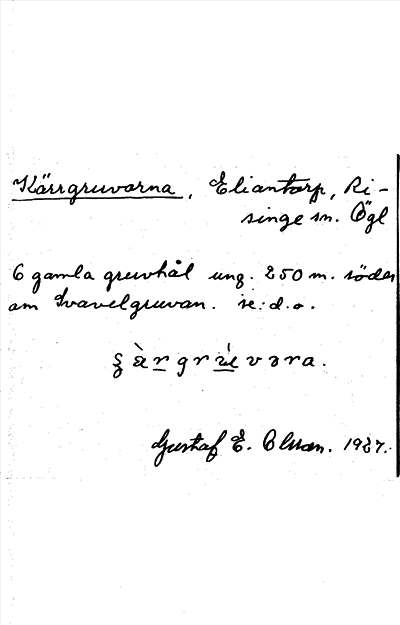 Kärrgruvorna, Eliantorp, Ri-
singe sn. Ögl
6 gamla gruvhål ung. 250 m. söder
om Svavelgruvan. se: d. o.
Gustaf E. Olsson. 1927.